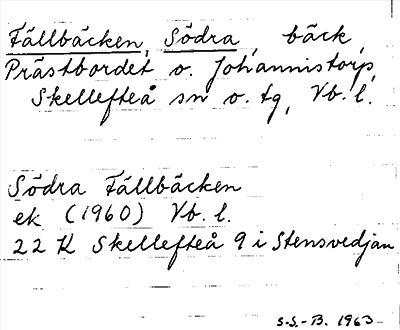 Fällbäcken, Södra, bäck,
Prästbordet o. Johannistorp,
Skellefteå sn o. tg, Vb. l.
Södra Fällbäcken
ek (1960) Vb. l.
22 K Skellefteå 9 i Stensvedjan
S-S.-B. 1963